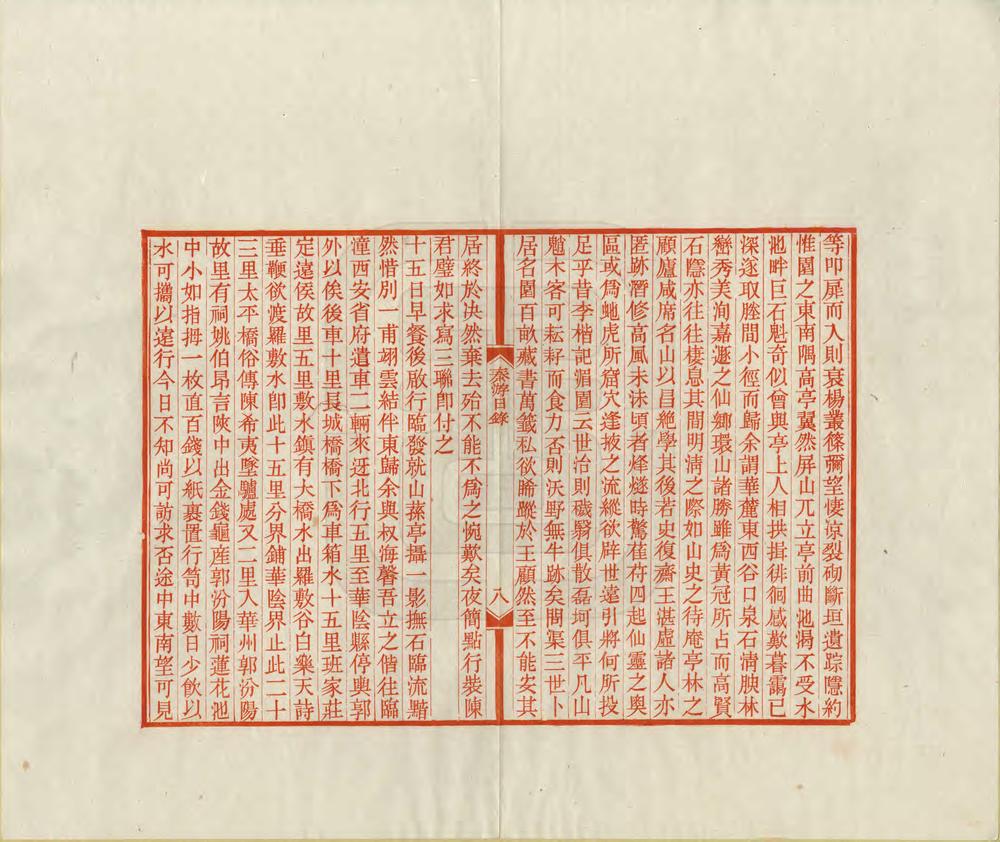 等叩扉而入則衰楊叢篠彌望悽凉裂砌斷垣遺踪隱約
惟園之東南隅高亭翼然屏山兀立亭前曲池涸不受水
池畔巨石魁奇似會與亭上人相拱揖徘徊感歎暮靄已
深遂取塍間小徑而歸余謂華麓東西谷口泉石淸腴林
巒秀美洵嘉遯之仙鄉環山諸勝雖爲黃冠所占而高賢
石隱亦往往棲息其間明淸之際如山史之待庵亭林之
顧廬咸席名山以昌絶學其後若史復齋王湛虛諸人亦
匿跡潛修高風未沬頃者烽燧時驚萑苻四起仙靈之奧
區或爲虵虎所窟穴逢掖之流縱欲辟世遠引將何所投
足乎昔李楷記湄園云世治則磯翳俱散磊坷俱平凡山
魈木客可耘耔而食力否則沃野無牛跡矣閻渠三世卜
居名園百畝藏書萬籤私欲晞蹤於王顧然至不能安其
秦游日錄
八
居終於決然棄去殆不能不爲之惋歎矣夜簡點行裝陳
君璧如求寫三聯卽付之
十五日早餐後啟行臨發就山蓀亭攝一影撫石臨流黯
然惜別一甫翊雲結伴東歸余與叔海馨吾立之偕往臨
潼西安省府遣車二輛來迓北行五里至華陰縣停輿郭
外以俟後車十里長城橋橋下爲車箱水十五里班家莊
定遠侯故里五里敷水鎭有大橋水出羅敷谷白樂天詩
垂鞭欲渡羅敷水卽此十五里分界鋪華陰界止此二十
三里太平橋俗傳陳希夷墜驢處又二里入華州郭汾陽
故里有祠姚伯昂言陝中出金錢龜產郭汾陽祠蓮花池
中小如指拇一枚直百錢以紙裹置行笥中數日少飲以
水可攜以遠行今日不知尚可訪求否途中東南望可見